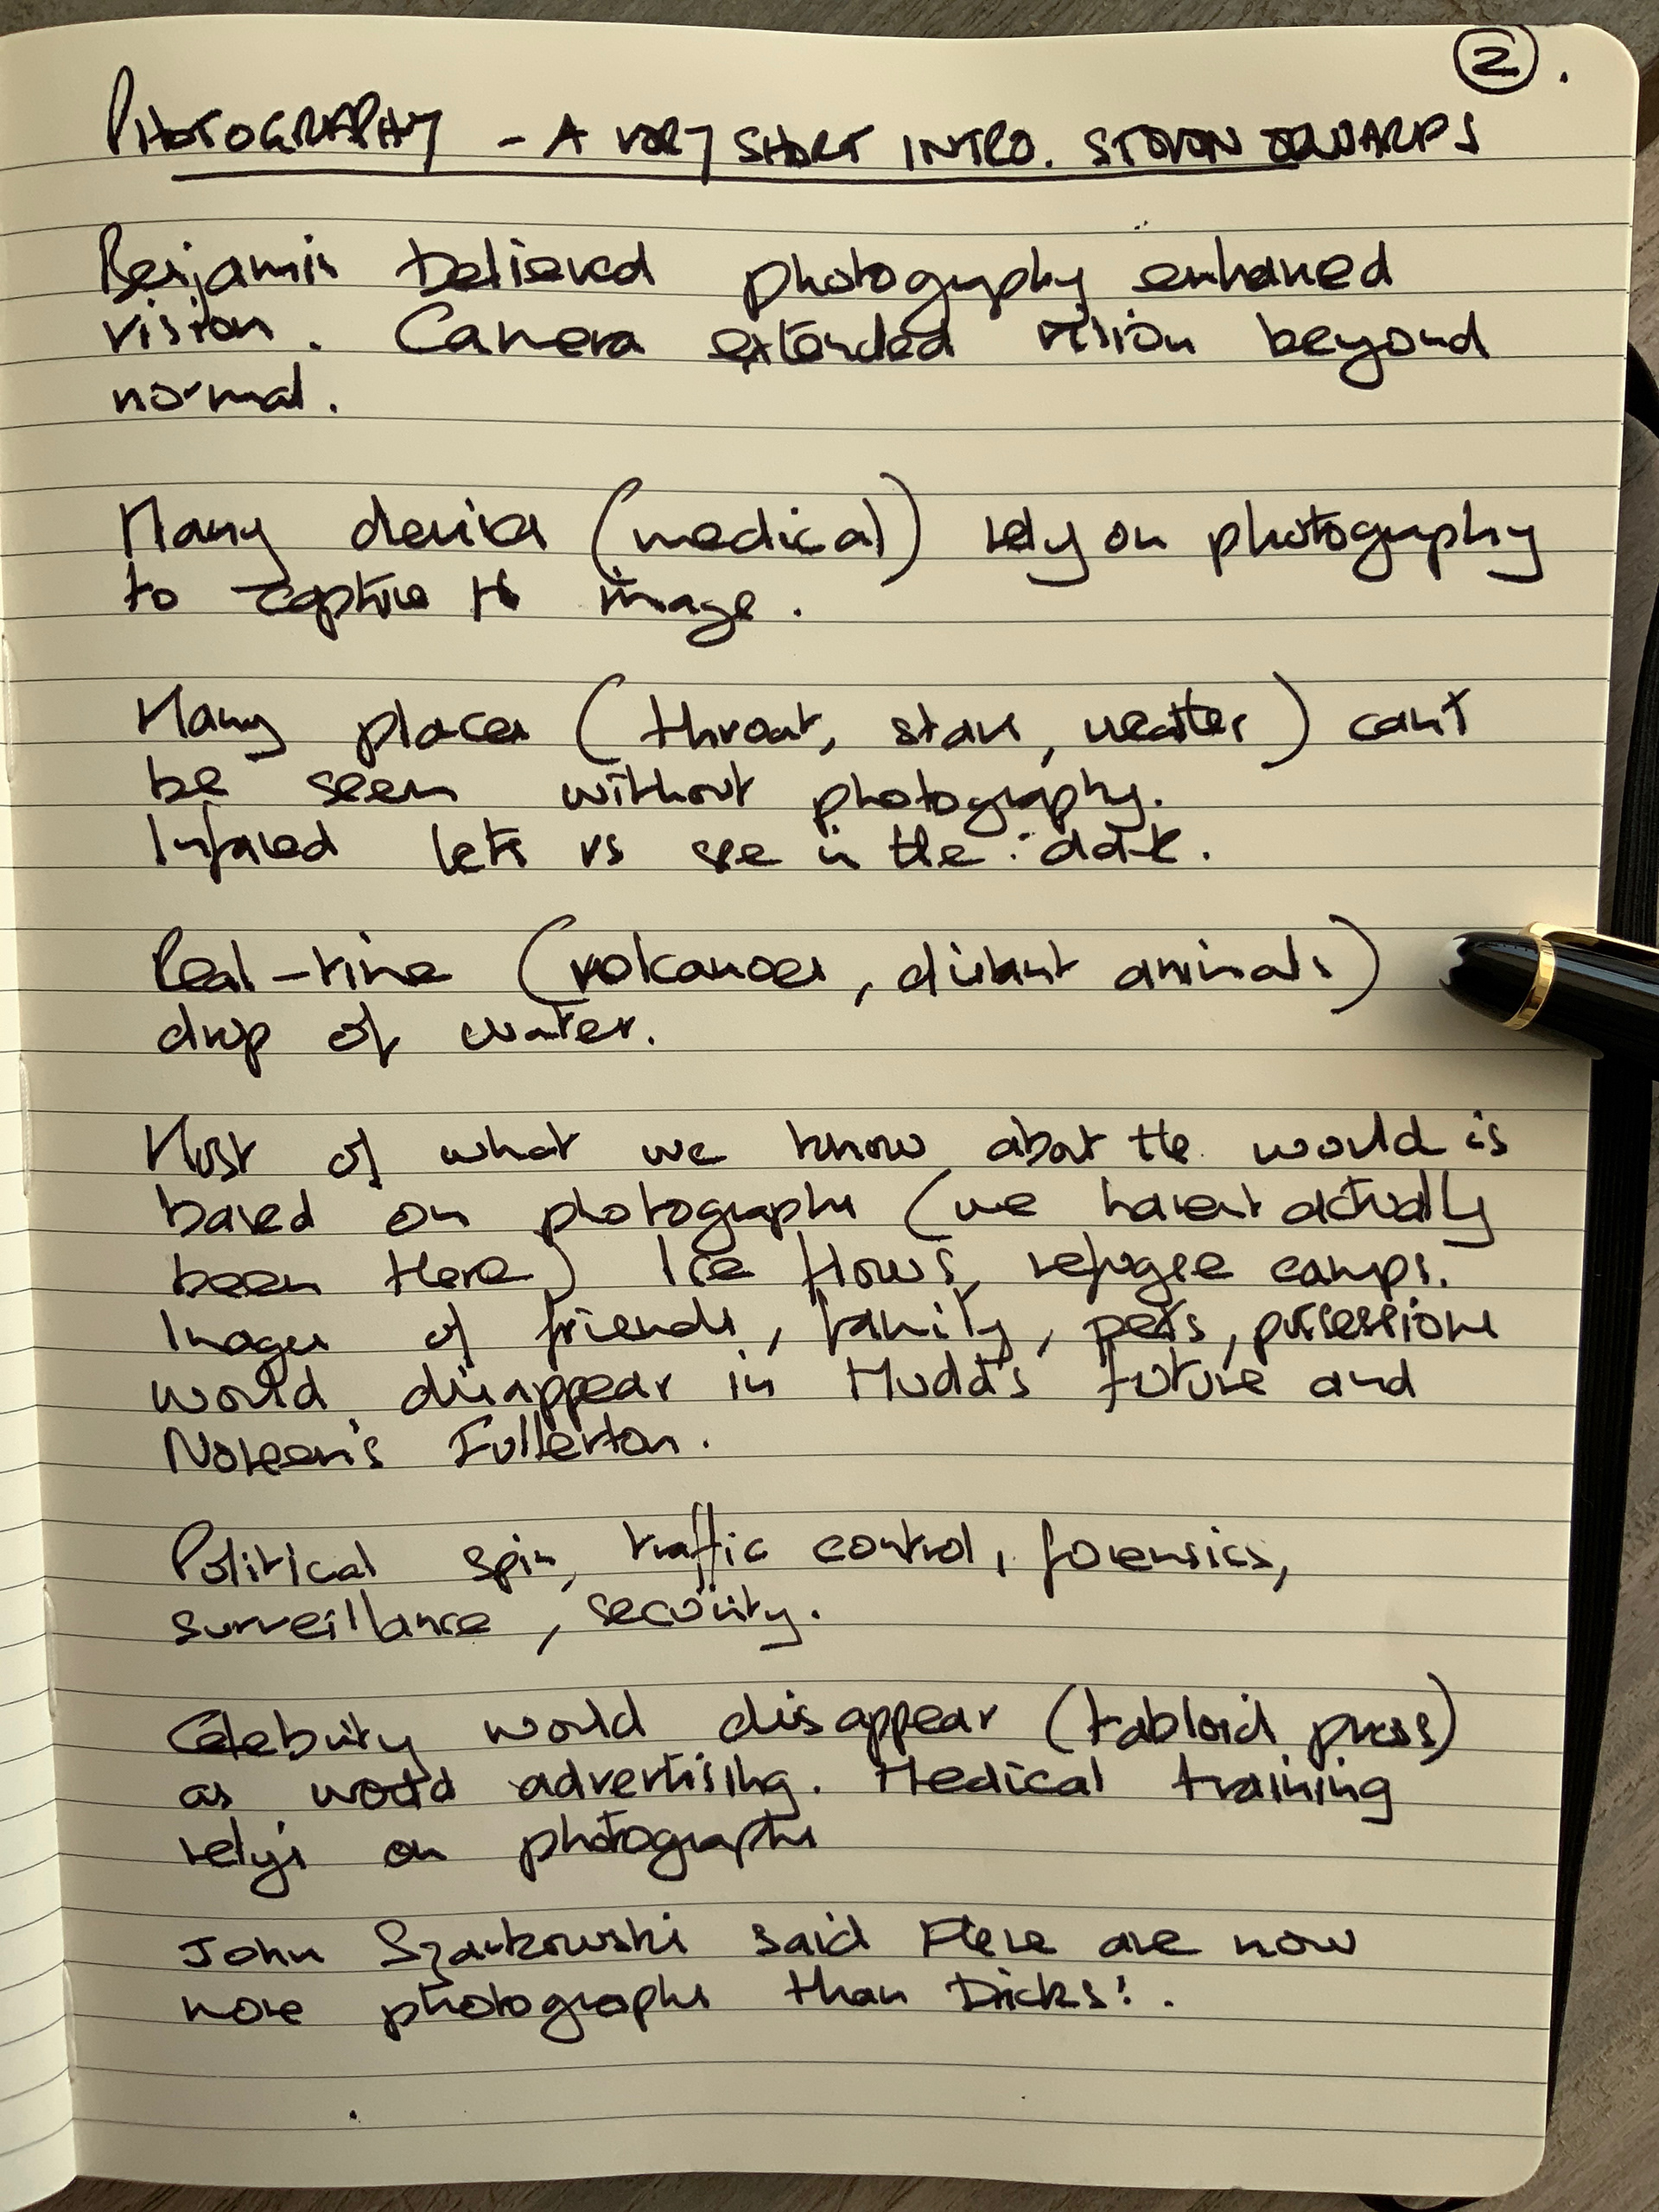 ②.
PHOTOGRAPHY - A VERY SHORT INTRO. STEVEN EDWARDS
Benjamin believed photography enhanced
vision. Camera extended vision beyond
normal.
Many devices (medical) rely on photography
to capture the image.
Many places (throat, stars, weather) can't
be seen without photography.
Infared lets us see in the dark.
Real-time (volcanoes, distant animals)
drop of water.
Most of what we know about the world is
based on photographs (we havent actually
been there) Ice flows, refugee camps.
Images of friends, family, pets, possessions
would disappear in Mudd's future and
Noreen's Fullerton.
Political spin, traffic control, forensics,
surveillance, security.
Celebrity would disappear (tabloid press)
as would advertising. Medical training
rely's on photographs
John Szarkowski said there are now
more photographs than Bricks!.